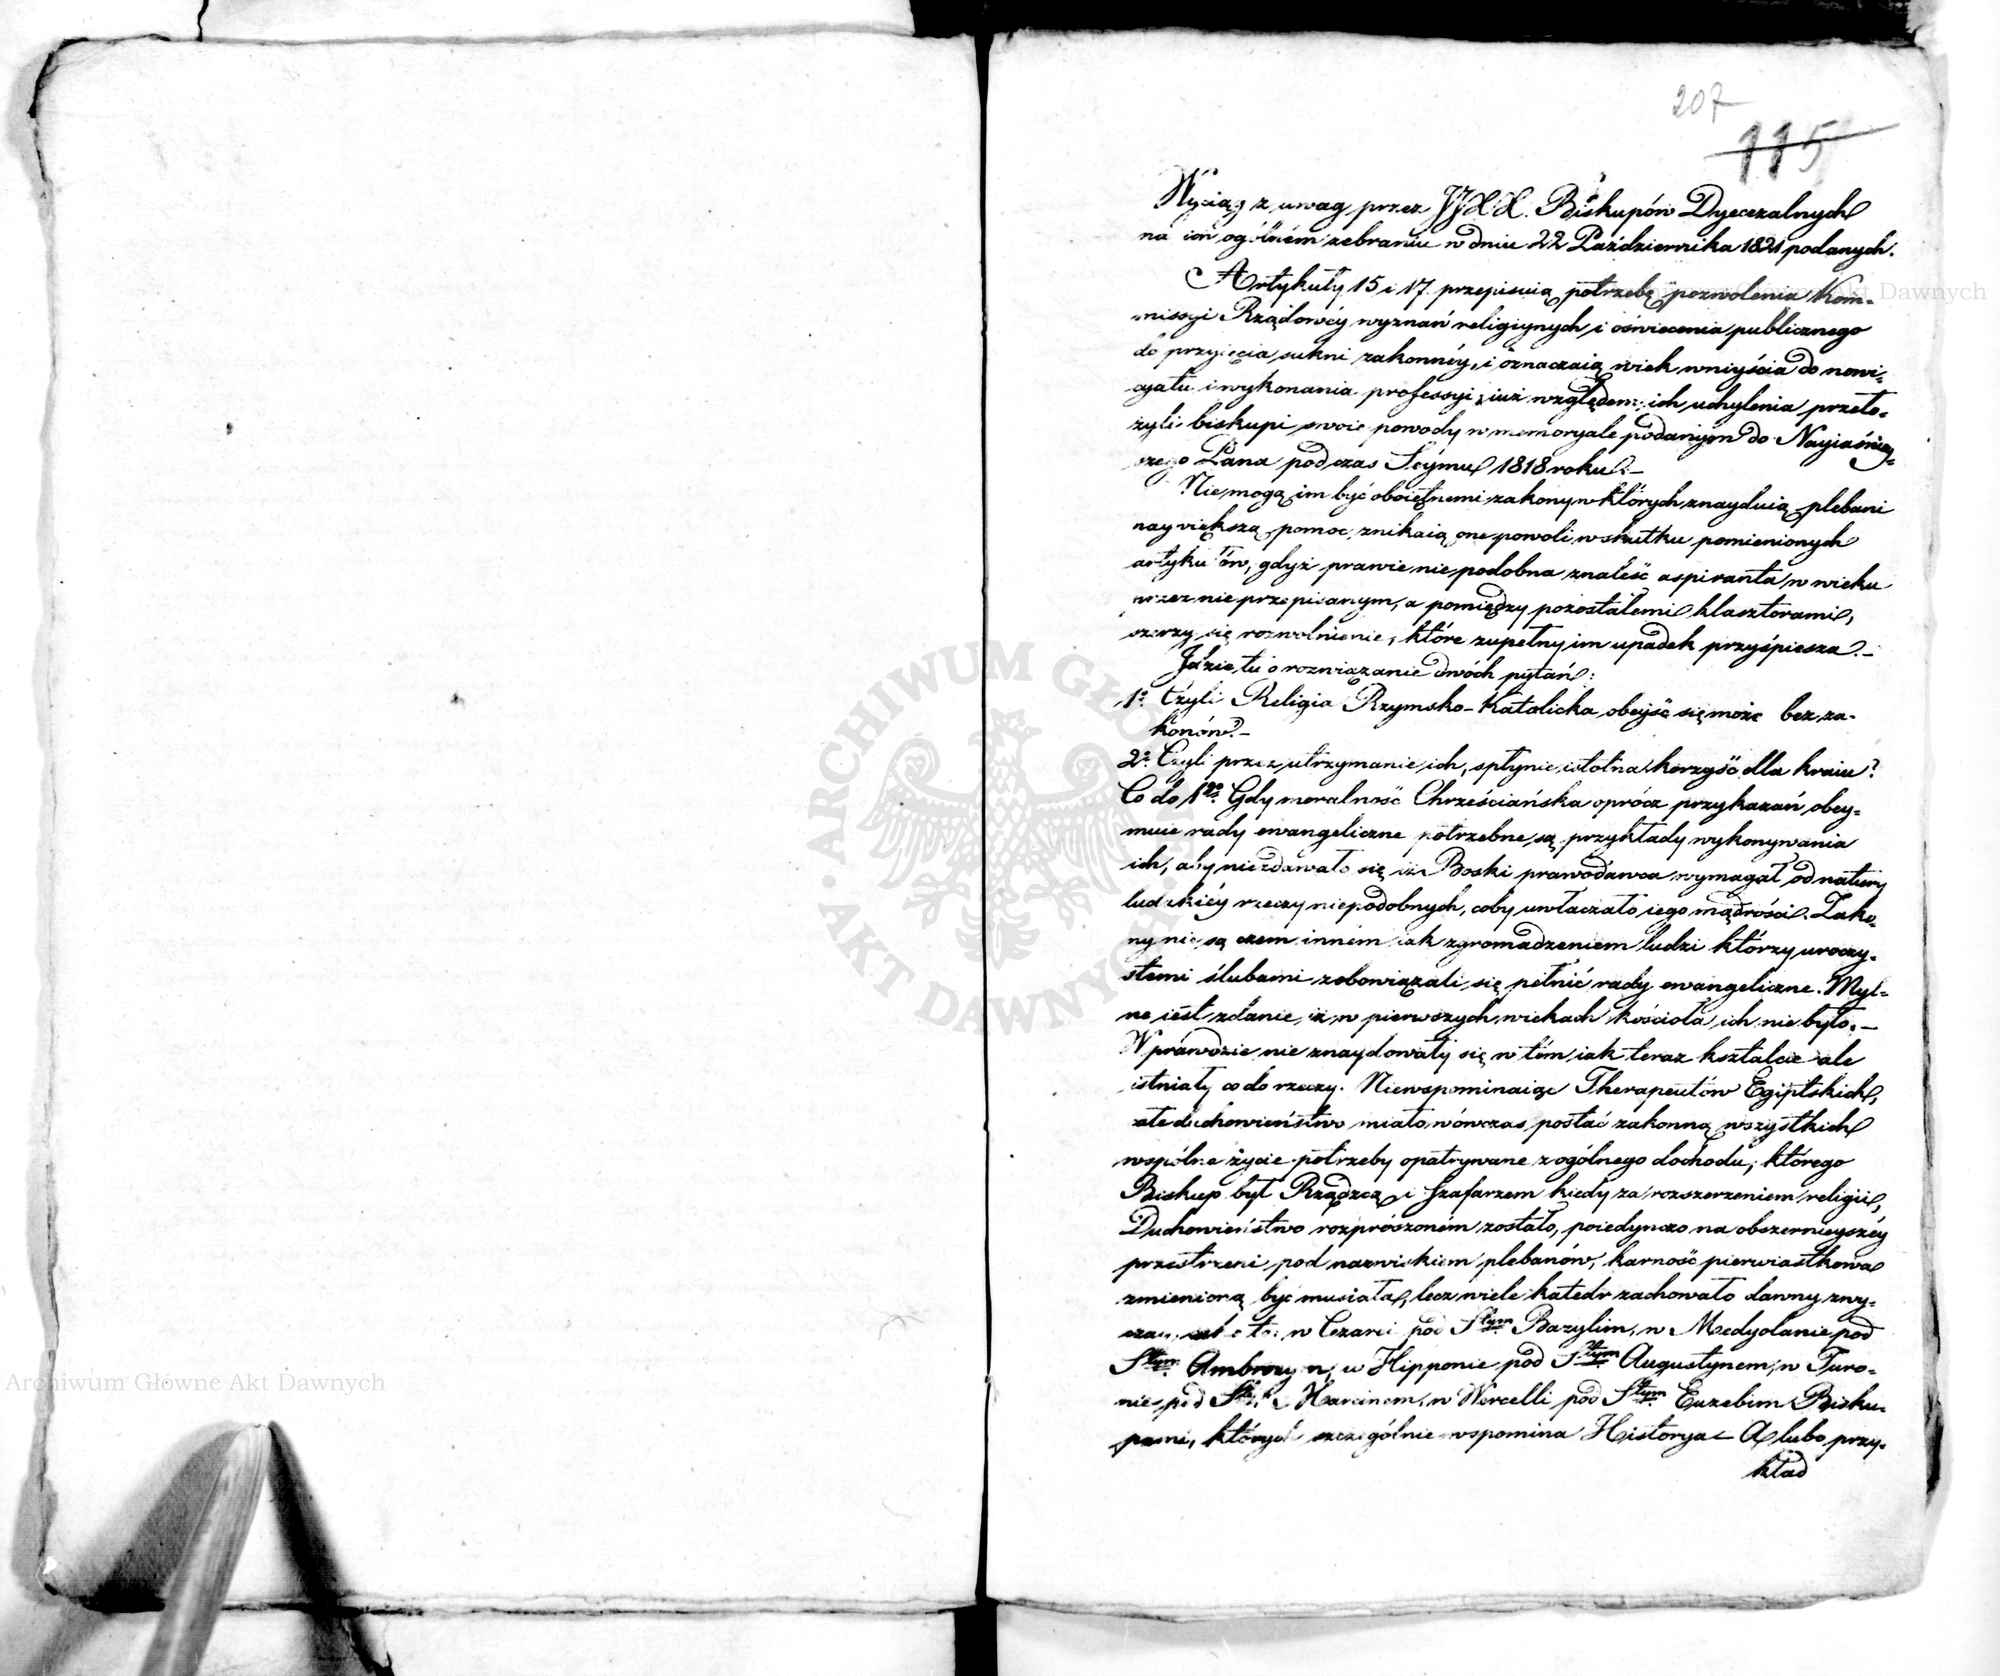 207
115
Wyciąg z uwag przez JJXX. Biskupów Dyecezalnych
na ich ogólném zebraniu w dniu 22 Października 1821 podanych.
Artykuły 15 i 17. przepisuią potrzebę pozwolenia Kom-
missyi Rządowéy wyznań religiynych i oświecenia publicznego
do przyięcia sukni zakonnéy, i oznaczaią wiek wniyścia do nowi-
cyatu i wykonania professyi; iuż względem ich uchylenia przeło-
żyli biskupi swoie powody w memoryale podanym do Nayiaśniey-
szego Pana podczas Séymu 1818 roku.-
Nie mogą im być oboiętnemi zakony w których znayduią plebani
naywiększą pomoc, znikaią one powoli w skutku pomienionych
artykułów, gdyż prawie niepodobna znaleść aspiranta w wieku
przez nie przepisanym, a pomiędzy pozostałemi klasztorami,
szerzy się rozwolnienie, które zupełny im upadek przyśpiesza.-
Idzie tu o rozwiązanie dwóch pytań:
1o. Czyli Religia Rzymsko-Katolicka obeyść się może bez za-
konów?-
2o. Czyli przez utrzymanie ich, spłynie istotna korzyść dla kraiu?
Co do 1go. Gdy moralność Chrześciańska oprócz przykazań obey-
muie rady ewangeliczne potrzebne są przykłady wykonywania
ich, aby niezdawało się iż Boski prawodawca wymagał od natury
ludzkiéy rzeczy niepodobnych, coby uwłaczało iego mądrości. Zako-
ny nie są czem inném iak zgromadzeniem ludzi którzy uroczy-
stemi ślubami zobowiązali się pełnić rady ewangeliczne. Myl-
ne iest zdanie, iż w pierwszych wiekach kościoła ich nie było.-
Wprawdzie nie znaydowały się w tém iak teraz kształcie ale
istniały co do rzeczy. Niewspominaiąc Therapeutów Egiptskich,
ale duchowieństwo miało wówczas postać zakonną wszystkich
wspólne życie potrzeby opatrywane z ogólnego dochodu, którego
Biskup był Rządzcą i szafarzem kiedy za rozszerzeniem religii,
Duchowieństwo rozprószoném zostało, poiedynczo na obszernieyszéy
przestrzeni pod nazwiskiem plebanów, karność pierwiastkowa
zmienioną być musiała, lecz wiele katedr zachowało dawny zwy-
czay, w Cezarei pod Stym Bazylim, w Medyolanie pod
Stym Ambrożym, w Hipponie pod Stym Augustynem, w Turo-
nie pod Stym Marcinem, w Wercelli pod Stym Euzebim Bisku-
pami, których szczególnie wspomina Historya- A lubo przy-
kład